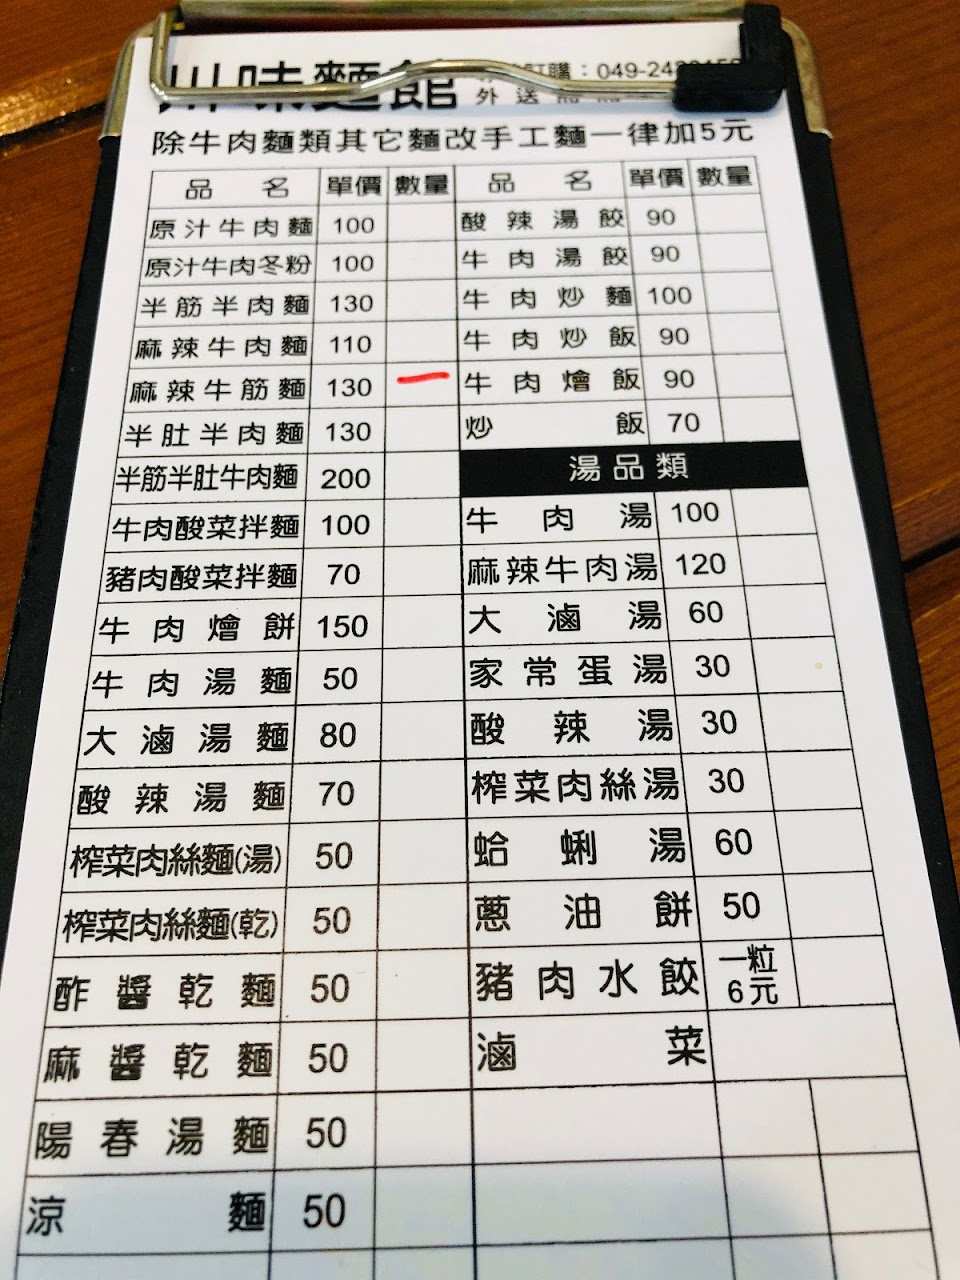 川味麵館
訂購：049-242
外送
除牛肉麵類其它麵改手工麵一律加5元
品名 單價 數量 品名 單價 數量
原汁牛肉麵 100 酸辣湯餃 90
原汁牛肉冬粉 100 牛肉湯餃 90
半筋半肉麵 130 牛肉炒麵 100
麻辣牛肉麵 110 牛肉炒飯 90
麻辣牛筋麵 130 一 牛肉燴飯 90
半肚半肉麵 130 炒飯 70
半筋半肚牛肉麵 200 湯品類
牛肉酸菜拌麵 100 牛肉湯 100
豬肉酸菜拌麵 70 麻辣牛肉湯 120
牛肉燴餅 150 大滷湯 60
牛肉湯麵 50 家常蛋湯 30
大滷湯麵 80 酸辣湯 30
酸辣湯麵 70 榨菜肉絲湯 30
榨菜肉絲麵(湯) 50 蛤蜊湯 60
榨菜肉絲麵(乾) 50 蔥油餅 50
酢醬乾麵 50 豬肉水餃 一粒6元
麻醬乾麵 50 滷菜
陽春湯麵 50
涼麵 50